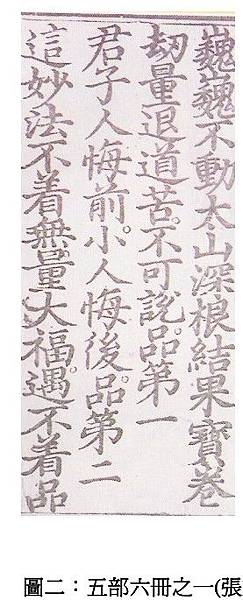 巍巍不動太山深根結果寶卷
劫量退道苦。不可說品第一
君子人悔前。小人悔後。品第二
這妙法不着無量大福遇不着品
圖二：五部六冊之一(張